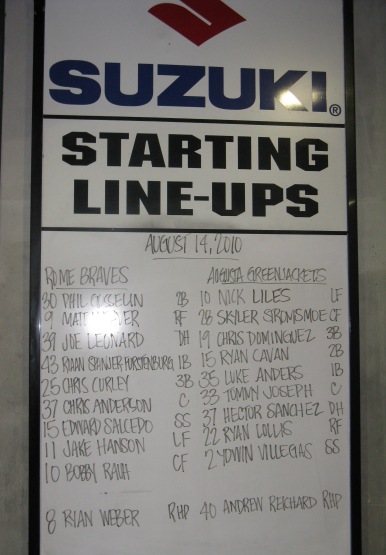 SUZUKI®
STARTING
LINE-UPS
AUGUST 14, 2010
ROME BRAVES
30 PHIL GOSSELIN 2B
9 MATT RF
39 JOE LEONARD DH
43 RIAAN SPANJER-FURSTENBURG 1B
25 CHRIS CURLEY 3B
37 CHRIS ANDERSON C
15 EDWARD SALCEDO SS
11 JAKE HANSON LF
10 BOBBY RAUH CF
8 RYAN WEBER RHP
AUGUSTA GREENJACKETS
10 NICK LILES LF
26 SKYLER STROMSMOE CF
19 CHRIS DOMINGUEZ 3B
15 RYAN CAVAN 2B
35 LUKE ANDERS 1B
33 TOMMY JOSEPH C
37 HECTOR SANCHEZ DH
22 RYAN LOLLIS RF
2 YDWIN VILLEGAS SS
40 ANDREW REICHARD RHP